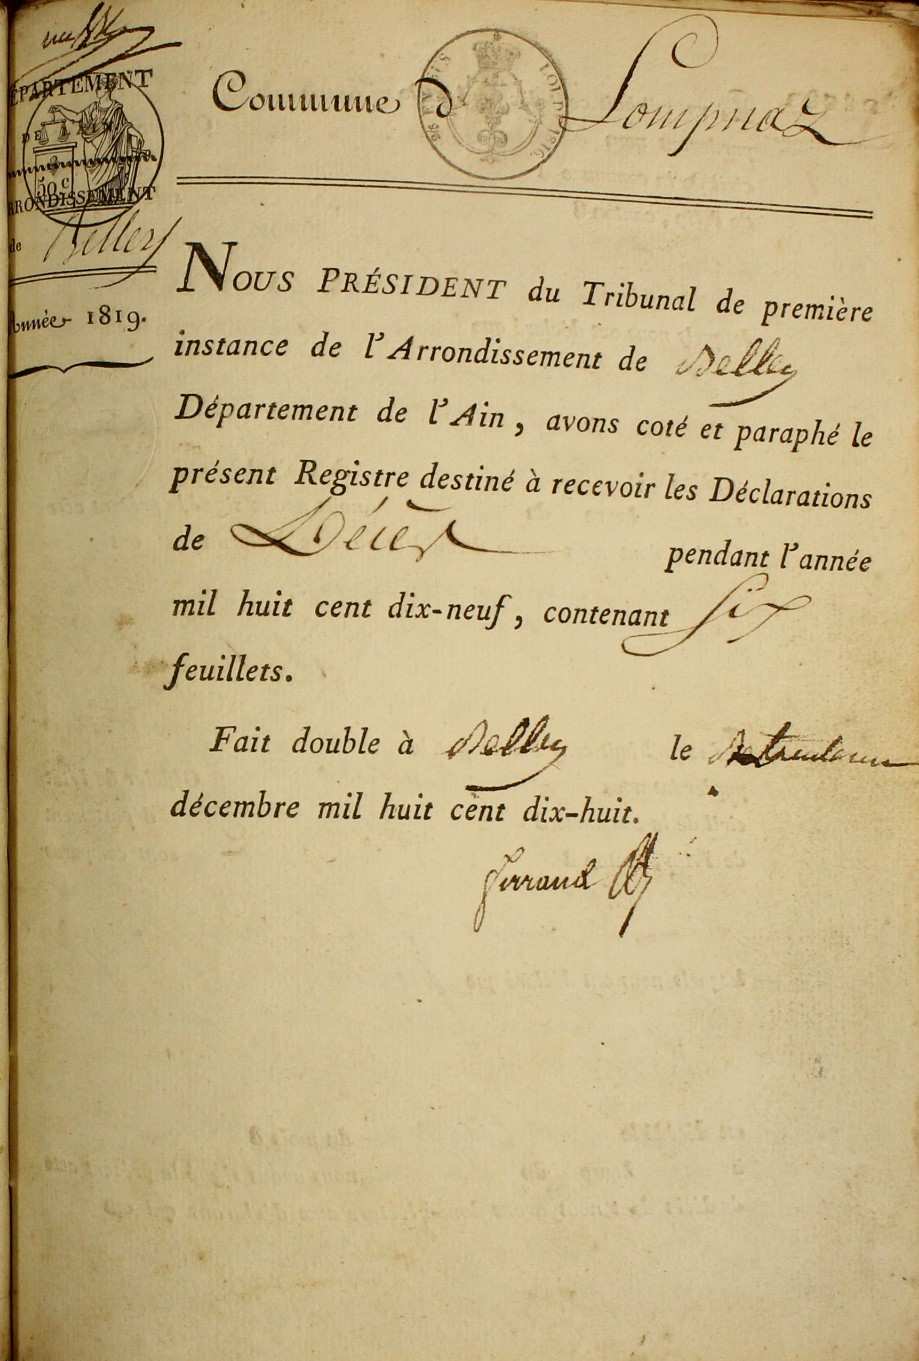 DÉPARTEMENT
DE L'AIN
50 c
ARRONDISSEMENT
de Belley
Année 1819.
Commune d Lompnaz
LOI DE 1816.
NOUS PRÉSIDENT du Tribunal de première
instance de l'Arrondissement de Belley
Département de l'Ain, avons coté et paraphé le
présent Registre destiné à recevoir les Déclarations
de Décès pendant l'année
mil huit cent dix-neuf, contenant Six
feuillets.
Fait double à Belley le trente un
décembre mil huit cent dix-huit.
Ferrand